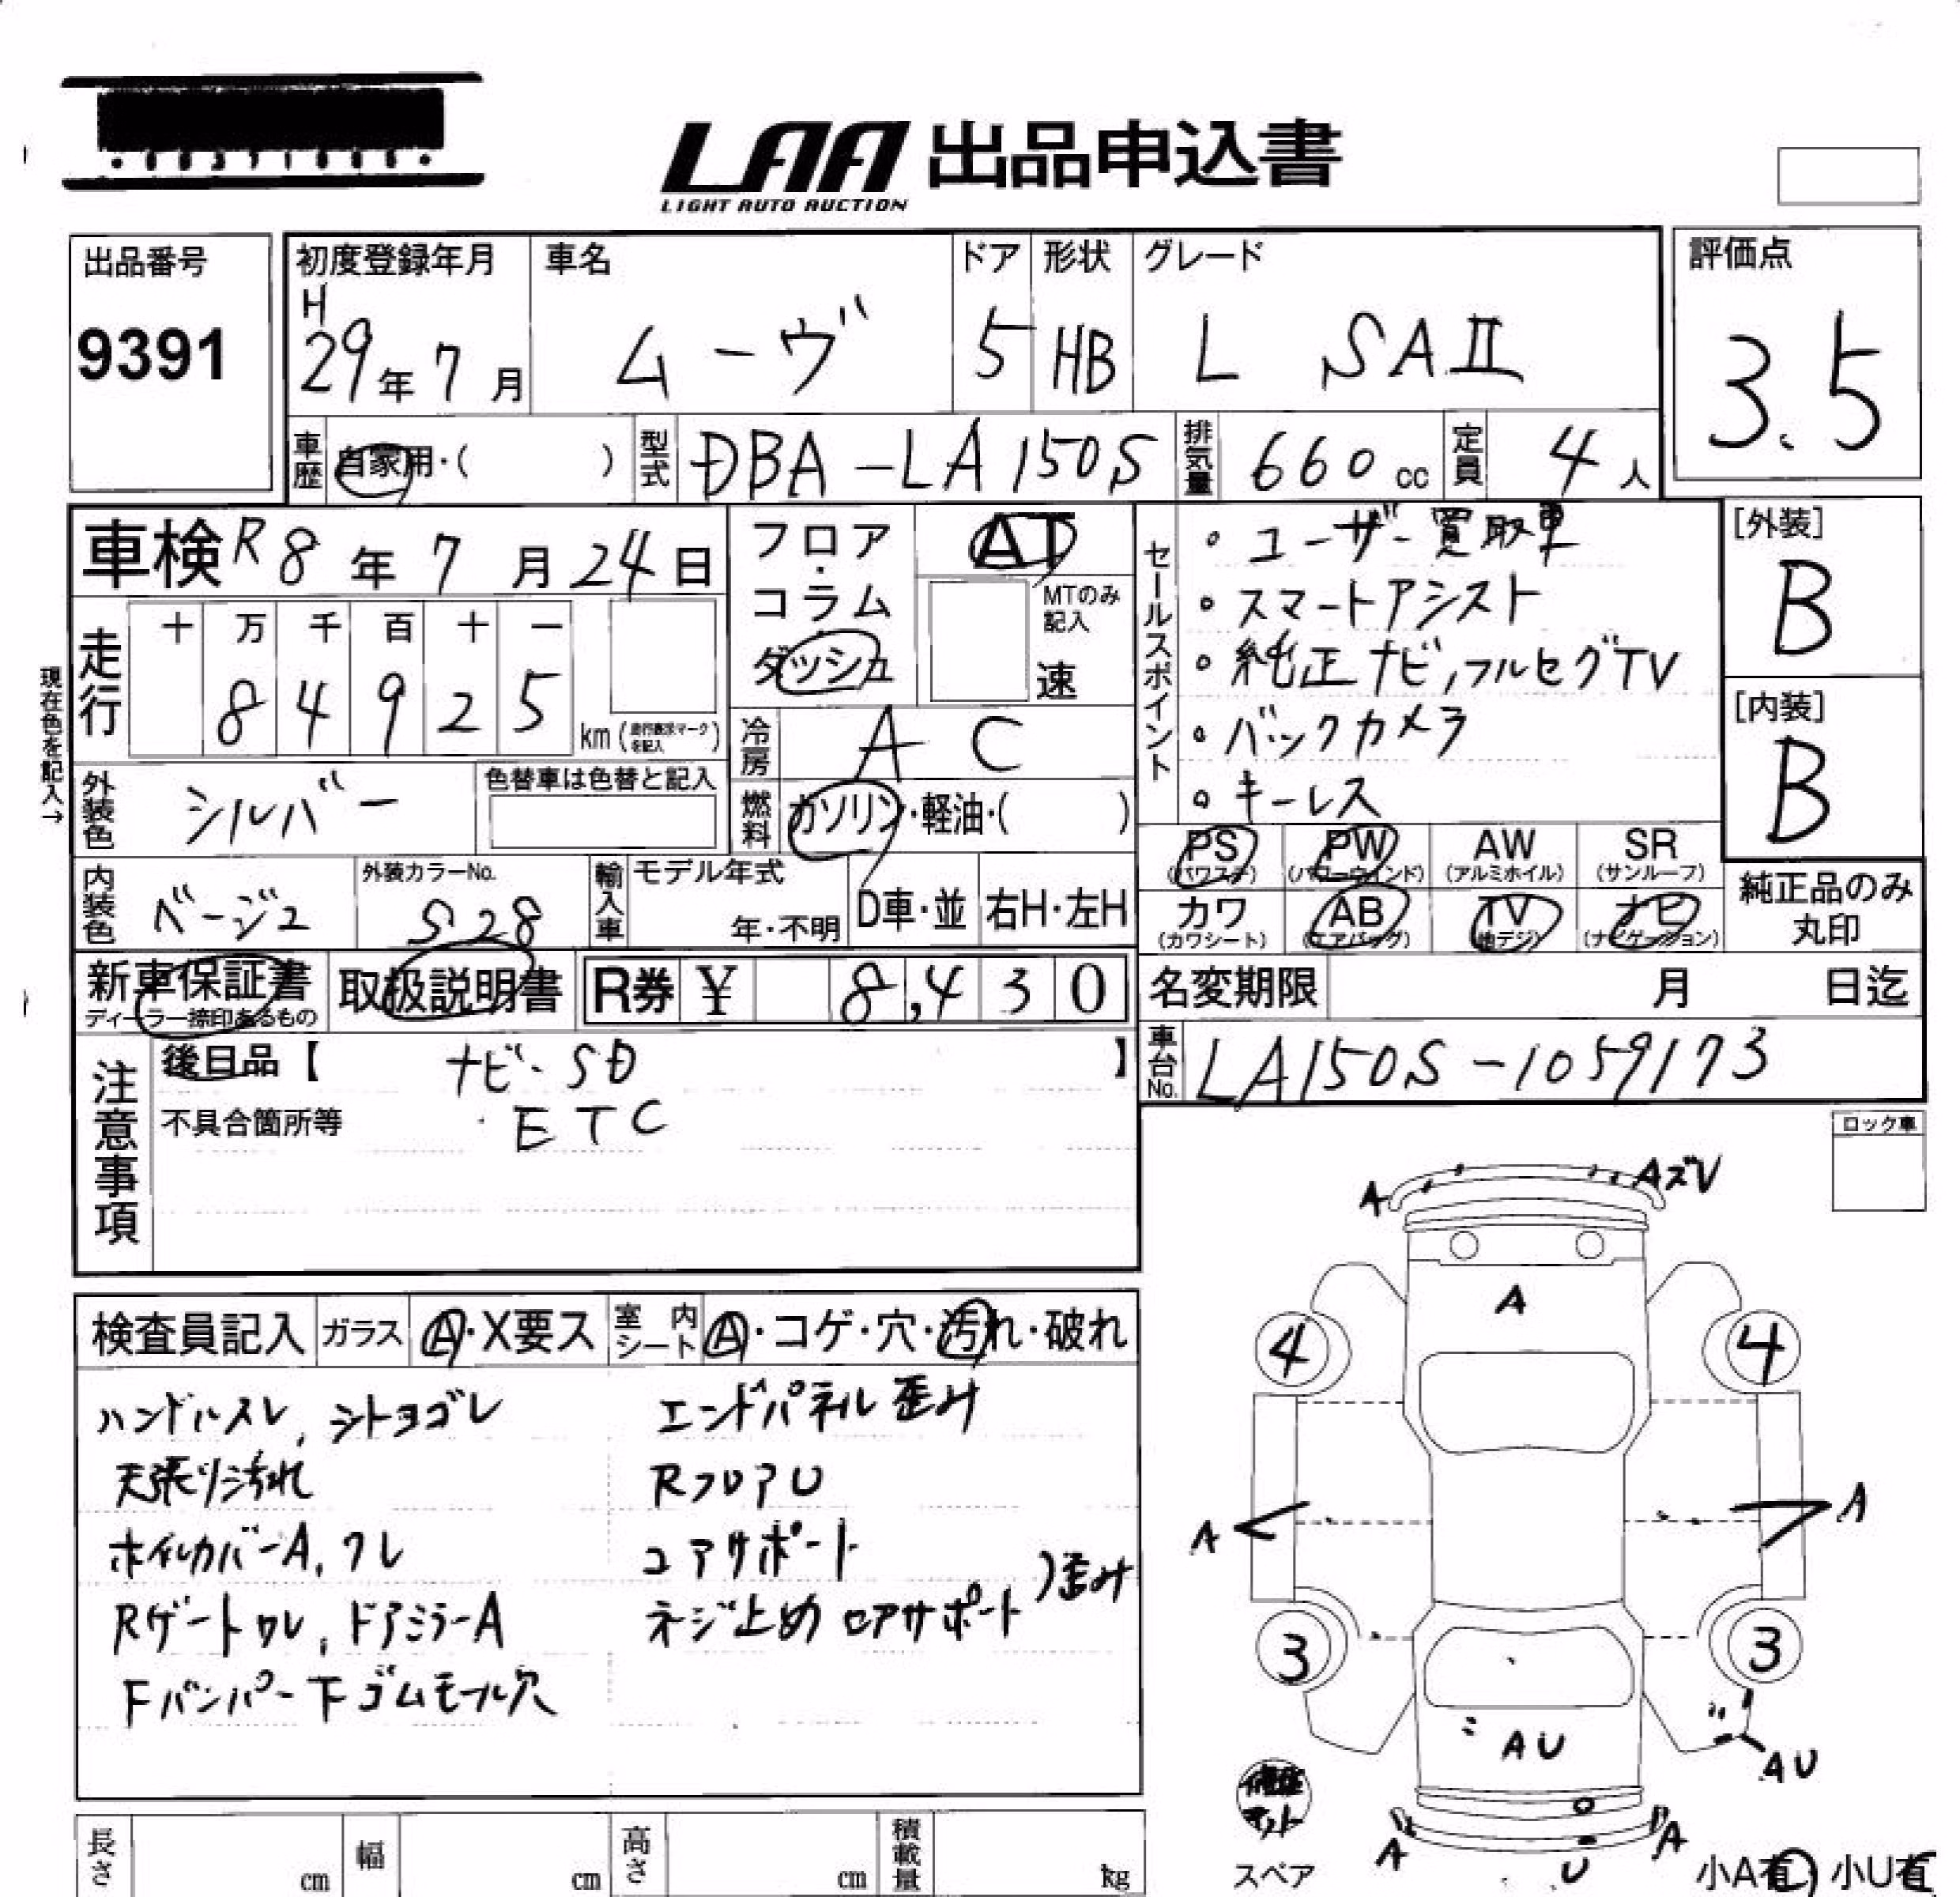 LAA 出品申込書
LIGHT AUTO AUCTION
出品番号
9391
初度登録年月
H
29年7月
車名
ムーヴ
ドア
5
形状
HB
グレード
L SAⅡ
評価点
3.5
車歴
自家用・( )
型式
DBA-LA150S
排気量
660cc
定員
4人
車検 R8年7月24日
フロア
コラム
ダッシュ
AT
MTのみ記入
速
走行
十 万 千 百 十 一
8 4 9 2 5
km
現在色を記入→
冷房
AC
外装色
シルバー
色替車は色替と記入
燃料
ガソリン・軽油・( )
内装色
ベージュ
外装カラーNo.
S28
輸入車
モデル年式
年・不明
D車・並
右H・左H
セールスポイント
・ユーザー買取車
・スマートアシスト
・純正ナビ,フルセグTV
・バックカメラ
・キーレス
[外装]
B
[内装]
B
PS
(パワステ)
PW
(パワーウインド)
AW
(アルミホイル)
SR
(サンルーフ)
カワ
(カワシート)
AB
(エアバッグ)
TV
(地デジ)
ナビ
(ナビゲーション)
純正品のみ
丸印
新車保証書
ディーラー捺印あるもの
取扱説明書
R券 ¥ 8,430
名変期限 月 日迄
車台No.
LA150S-1059173
注意事項
後日品【 ナビ・SD 】
不具合箇所等 ・ETC
ロック車
検査員記入
ガラス
A・X要ス
室内シート
A・コゲ・穴・汚れ・破れ
ハンドルスレ, シートヨゴレ
天張り汚れ
ホイルカバーA, ワレ
Rゲートワレ, ドアミラーA
Fバンパー下ゴムモール穴
エンドパネル歪み
RフロアU
コアサポート
ネジ止めコアサポート )歪み
A
Aズレ
A
4
4
A
A
3
3
AU
AU
A
A
U
スペア
小A有 小U有
長さ cm
幅 cm
高さ cm
積載量 kg